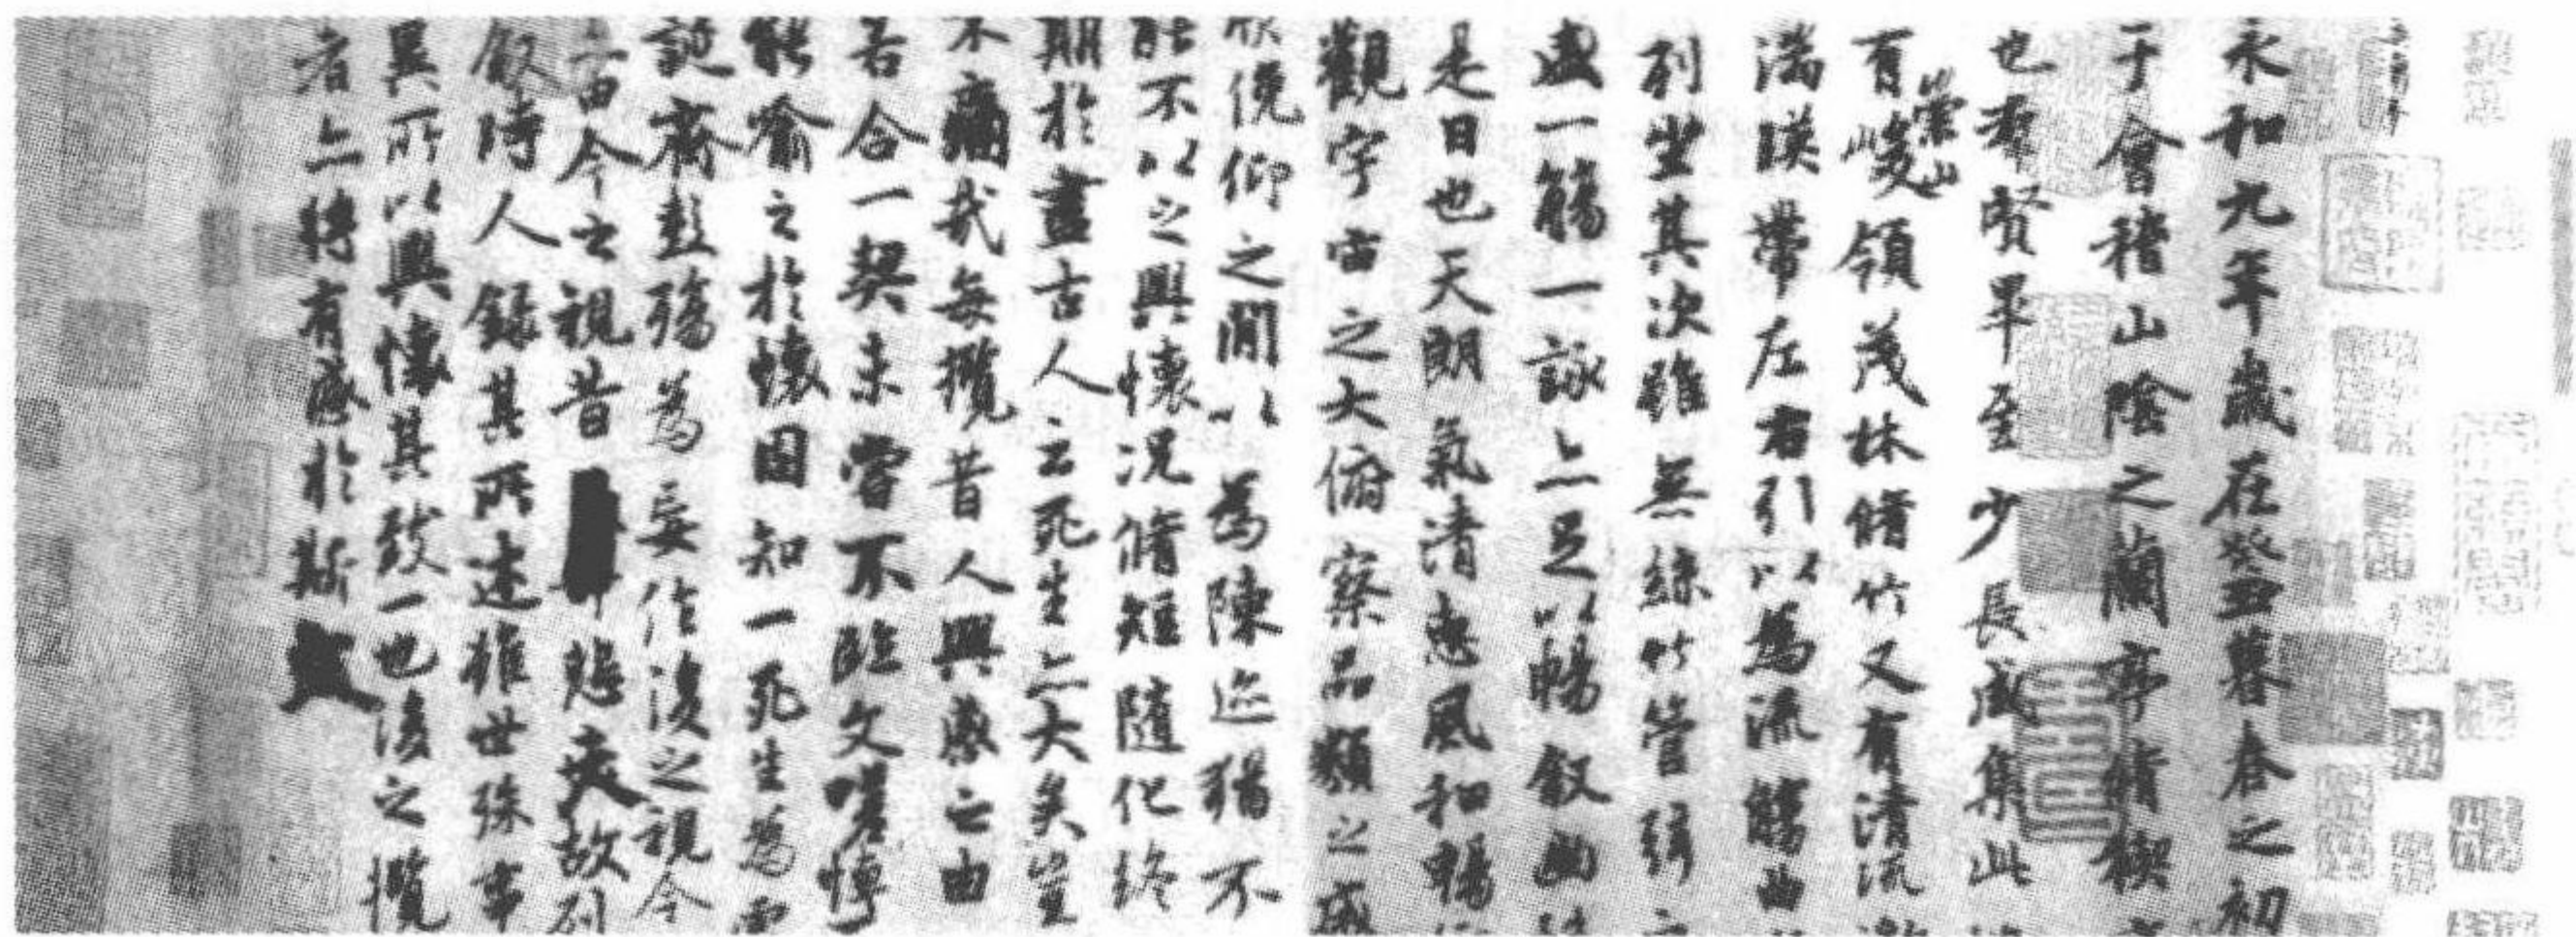 永和九年歲在癸丑暮春之初
于會稽山陰之蘭亭脩稧
也羣賢畢至少長咸集此
有峻領茂林脩竹又有清流
崇山
湍暎帶左右引以為流觴曲
列坐其次雖無絲竹管弦
盛一觴一詠亦足以暢叙幽
是日也天朗氣清惠風和暢
觀宇宙之大俯察品類之盛
俛仰之間以為陳迹猶不
能不以之興懷況脩短隨化終
期於盡古人云死生亦大矣豈
不痛哉每攬昔人興感之由
若合一契未嘗不臨文嗟悼
能喻之於懷固知一死生為虛
誕齊彭殤為妄作後之視今
由今之視昔悲夫故列
叙時人錄其所述雖世殊事
異所以興懷其致一也後之攬
者亦將有感於斯文